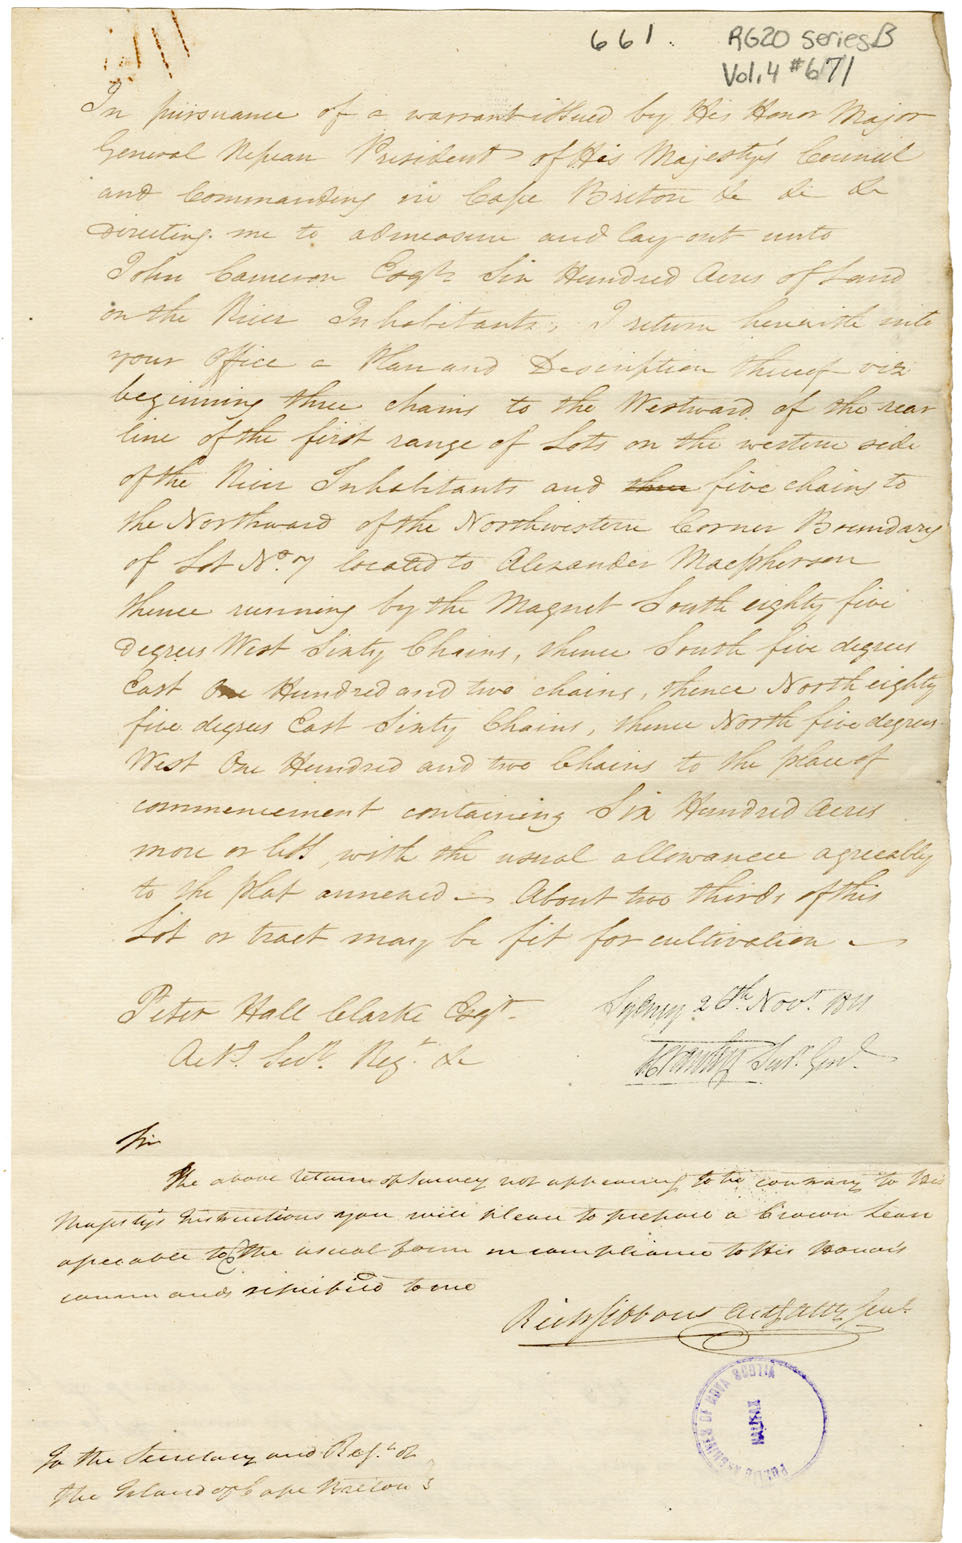 661.
RG20 series B
Vol. 4 #671
In pursuance of a warrant issued by His Honor Major
General Nepean President of His Majesty's Council
and Commanding in Cape Breton &c &c &c
Directing me to admeasure and lay out unto
John Cameron Esqr. Six Hundred Acres of Land
on the River Inhabitants, I return herewith into
your Office a Plan and Description thereof viz
beginning three chains to the Westward of the rear
line of the first range of Lots on the western side
of the River Inhabitants and three five chains to
the Northward of the Northwestern Corner Boundary
of Lot No. 7 located to Alexander Macpherson
thence running by the Magnet South eighty five
Degrees West Sixty Chains, thence South five degrees
East One Hundred and two chains, thence North eighty
five degrees East Sixty Chains, thence North five degrees
West One Hundred and two Chains to the place of
commencement containing Six Hundred Acres
more or less, with the usual allowance agreeably
to the plat annexed — About two thirds of this
Lot or tract may be fit for cultivation —
Peter Hall Clarke Esqr.
Actg. Secy. Regr. &c
Sydney 20th. Novr. 1811
Survr. Genl.
Sir
The above return of survey not appearing to be contrary to His
Majesty's Instructions you will please to prepare a Crown Lease
agreeable to the usual form in compliance to His Honor's
commands signified to me
Richd Gibbons Actg Atty Genl.
PUBLIC ARCHIVES OF NOVA SCOTIA
HALIFAX
To the Secretary and Regr. of
the Island of Cape Breton